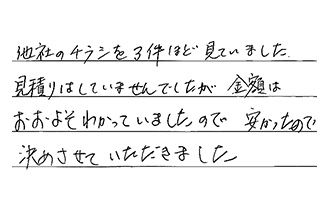 他社のチラシを3件ほど見ていました.
見積りはしていませんでしたが 金額は
おおよそわかっていましたので 安かったので
決めさせていただきました